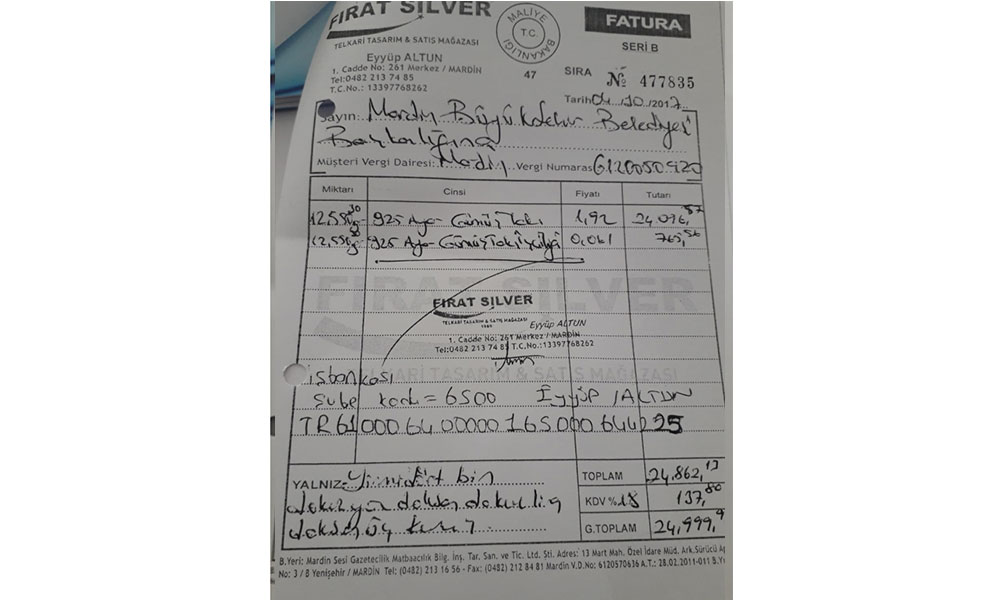 FIRAT SILVER
TELKARİ TASARIM & SATIŞ MAĞAZASI
Eyyüp ALTUN
1. Cadde No: 261 Merkez / MARDİN
Tel:0482 213 74 85
T.C.No.: 13397768262
MALİYE BAKANLIĞI
T.C.
47
FATURA
SERİ B
SIRA № 477835
Tarih 04.10.2017
Sayın: Mardin Büyükşehir Belediyesi
Başkanlığına
Müşteri Vergi Dairesi: Mardin Vergi Numarası 6120050920
Miktarı Cinsi Fiyatı Tutarı
925 Ayar Gümüş Takı 1,92
925 Ayar Gümüş Takı İşçiliği 0,061
FIRAT SILVER
FIRAT SILVER
TELKARİ TASARIM & SATIŞ MAĞAZASI
Eyyüp ALTUN
1. Cadde No: 261 Merkez / MARDİN
Tel:0482 213 74 85 T.C.No.:13397768262
TELKARİ TASARIM & SATIŞ MAĞAZASI
işbankası
Şube kodu = 6500 Eyyüp ALTUN
YALNIZ Yirmidört bin
dokuzyüz doksan dokuz lira
doksan üç kuruş
TOPLAM 24.862,13
KDV %18 137,80
G.TOPLAM 24,999,9
B.Yeri: Mardin Sesi Gazetecilik Matbaacılık Bilg. İnş. Tar. San. ve Tic. Ltd. Şti. Adres: 13 Mart Mah. Özel İdare Müd. Ark.Sürücü
No: 3 / B Yenişehir / MARDİN Tel: (0482) 213 16 56 - Fax: (0482) 212 84 81 Mardin V.D.No: 6120570636 A.T.: 28.02.2011-011 B.Y